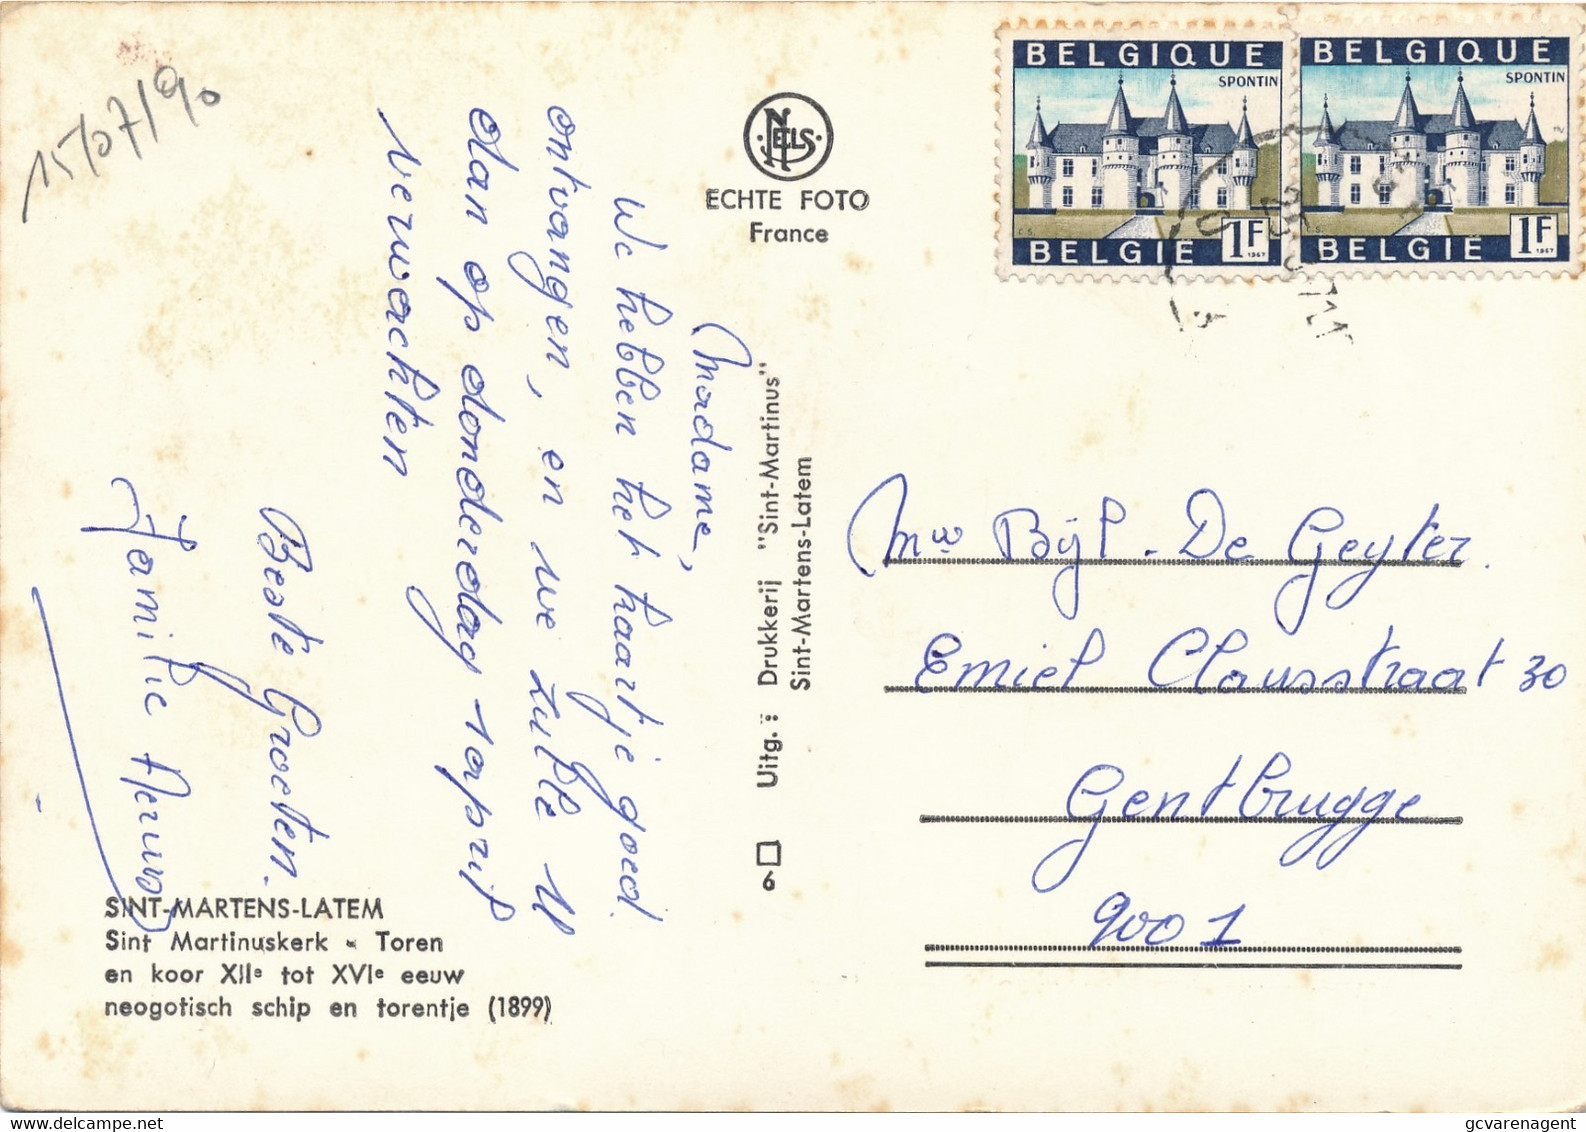 15/07/90
Madame,
We hebben het kaartje goed
ontvangen, en we zulle U
dan op donderdag
verwachten
Beste Groeten.
Familie
NELS
ECHTE FOTO
France
Uitg. : Drukkerij "Sint-Martinus"
Sint-Martens-Latem
6
SINT-MARTENS-LATEM
Sint Martinuskerk - Toren
en koor XIIe tot XVIe eeuw
neogotisch schip en torentje (1899)
BELGIQUE
SPONTIN
BELGIË 1F
1967
BELGIQUE
SPONTIN
BELGIË 1F
1967
Mw Bijl - De Geyter.
Emiel Clausstraat 30
Gentbrugge
9001
gcvarenagent